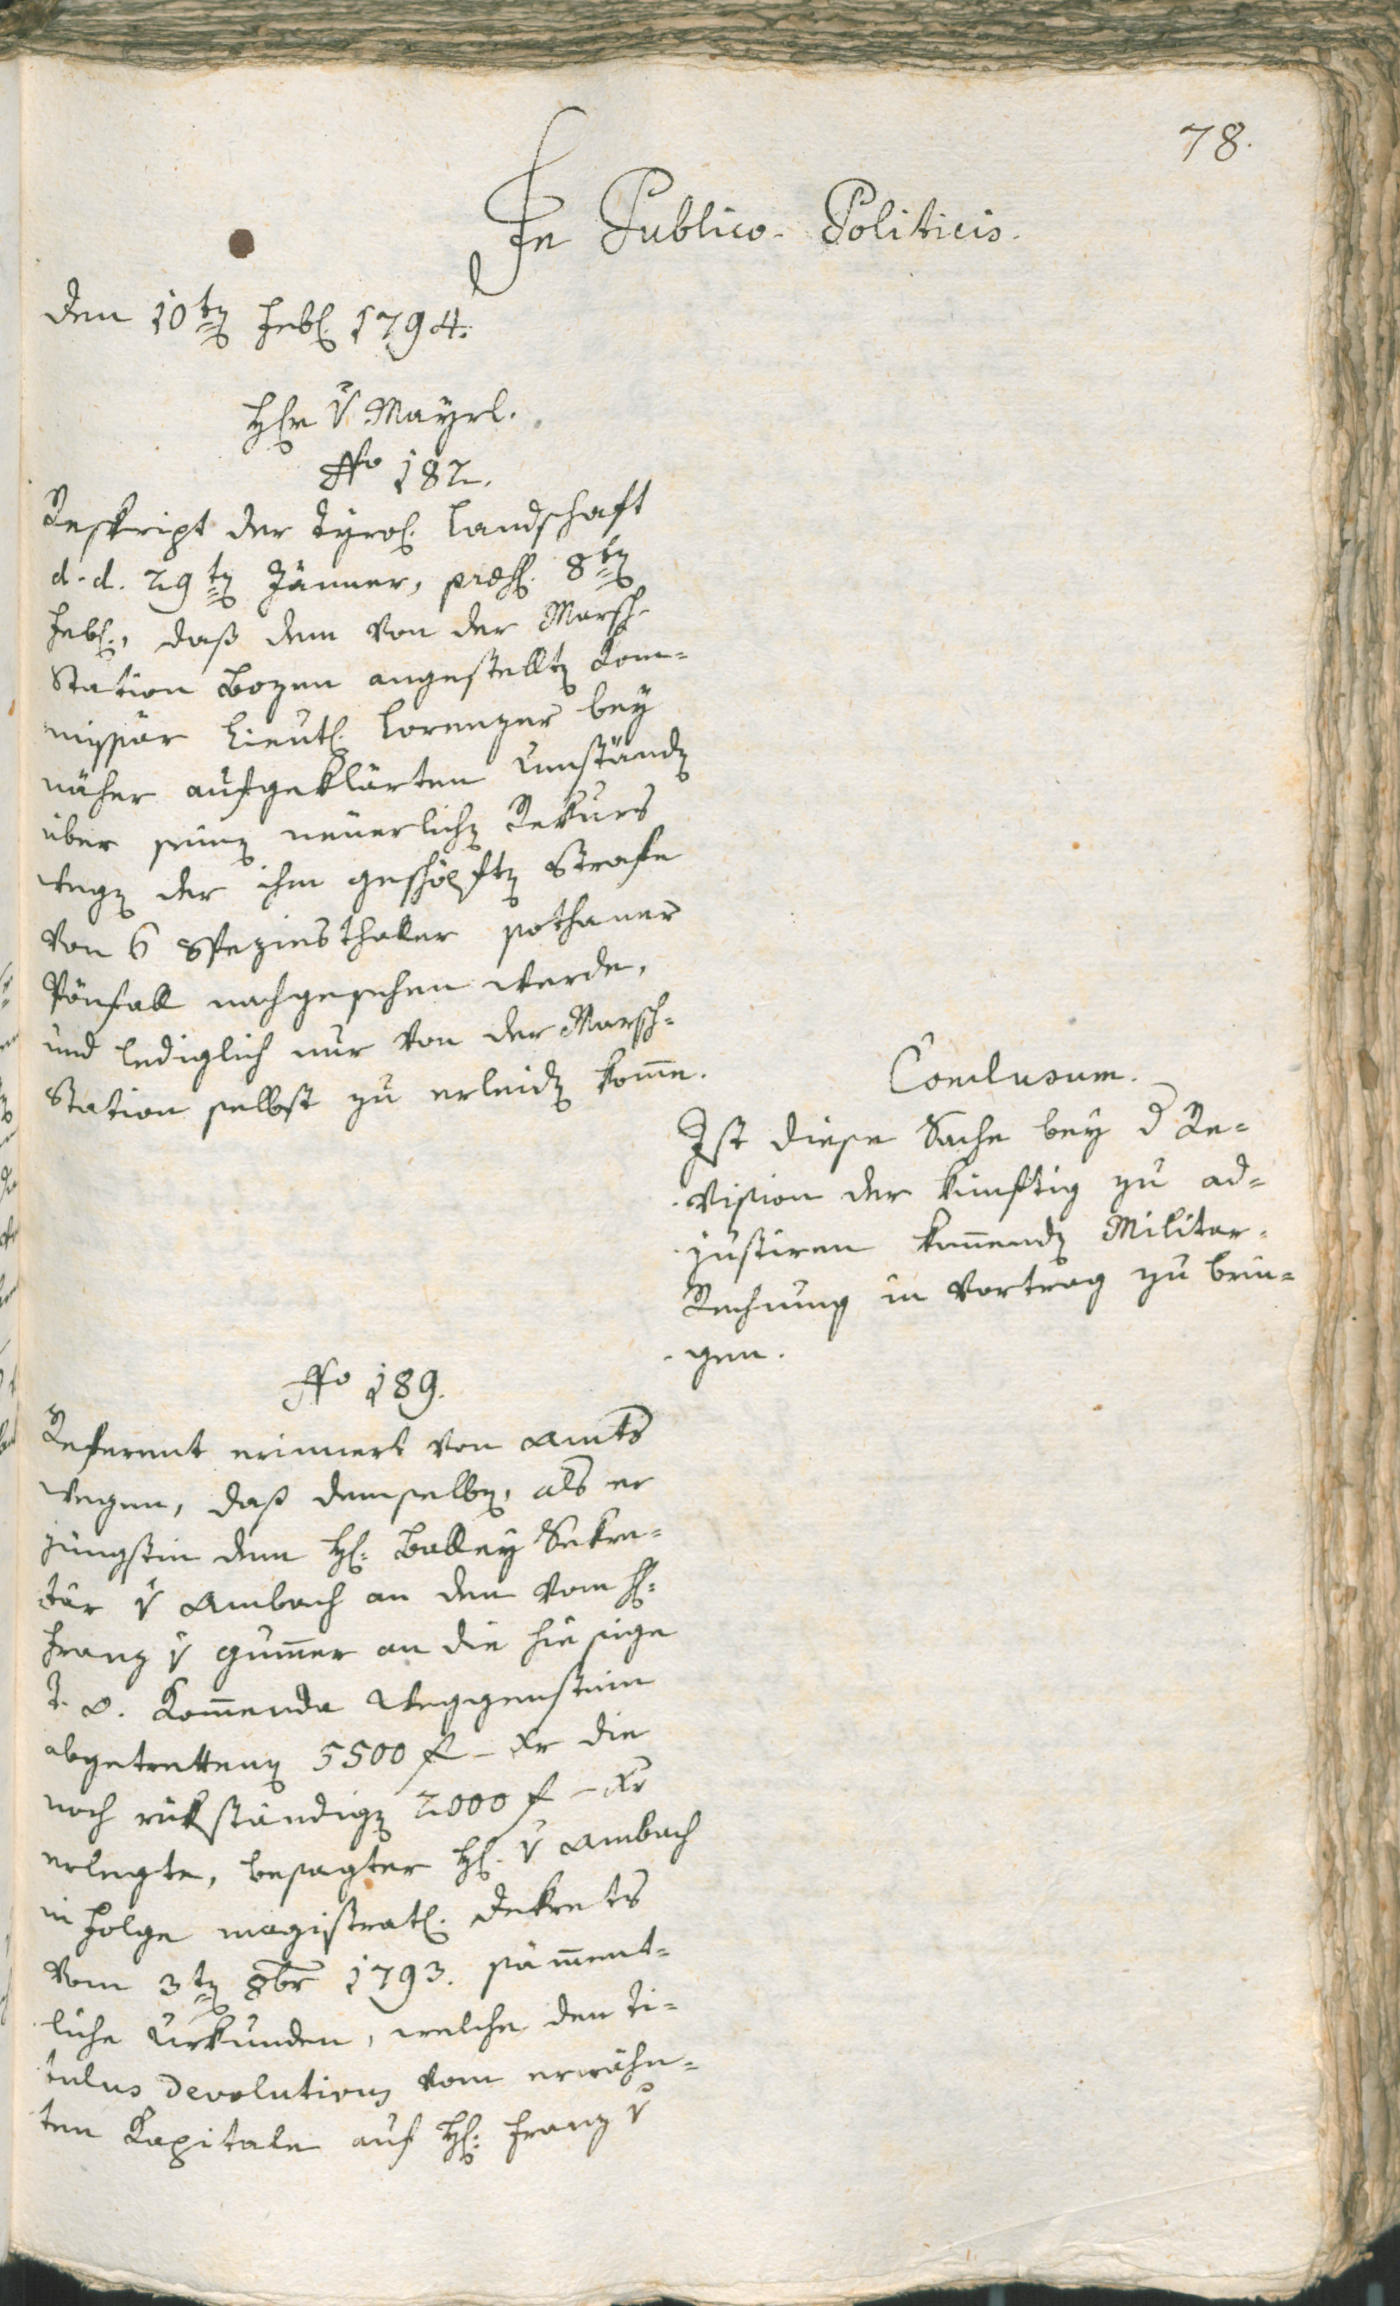 78.
In Publico-Politicis.
den 10t Feb. 1794.
Hr v Mayrl.
No 182.
Reskript der Tyrol. Landschaft
d. d. 29t Jänner, præs. 8t
Feb., daß dem von der Marsch-
Station Bozen angestellten Kom-
missär Lieut. Lorenzer bey
näher aufgeklärten Umständen
über seinen neuerlichen Rekurs
wegen der ihm geschöpften Strafe
von 6 Speziesthaller sothaner
Pönfall nachgesehen werde,
und lediglich nur von der Marsch-
Station selbst zu erleiden kome.
Conclusum.
Ist diese Sache bey d Re-
vision der künftig zu ad-
justiren komenden Militar-
Rechnung in Vortrag zu brin-
gen.
No 189.
Referent erinnert von Amts
wegen, daß demselben, als er
jüngsthin dem H. Balley Sekre-
tär v Ambach an den vom H.
Franz v Gumer an die hiesige
T. O. Komenda Weggenstein
abgetrettenen 5500 f – xr die
noch rükständigen 2000 f – xr
erlegte, besagter H. v Ambach
in Folge magistratl. Dekrets
vom 3ten 8br 1793. sämment-
liche Urkunden, welche den Ti-
tulus Devolutionis vom erwähn-
ten Kapitale auf H. Franz v